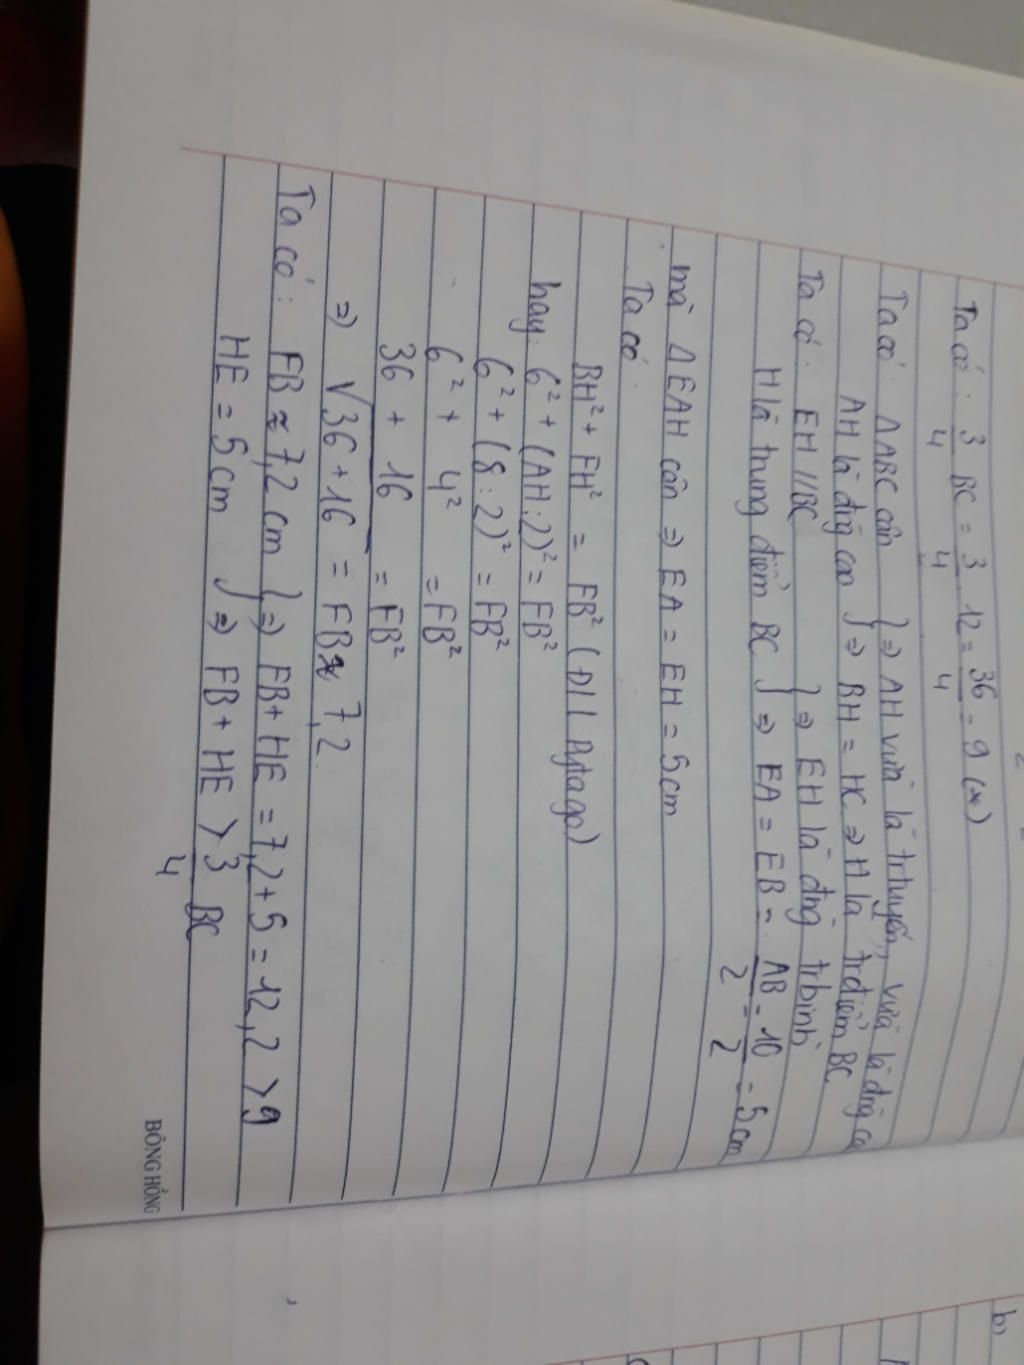 Ta có: 3/4 BC = 3/4 . 12 = 36/4 = 9 (cm)
Ta có: ΔABC cân } => AH vừa là trtuyến, vừa là đng ca
AH là đng cao } => BH = HC => H là trđiểm BC
Ta có: EH // BC } => EH là đng trbình
H là trung điểm BC } => EA = EB = AB/2 = 10/2 = 5 cm
mà ΔEAH cân => EA = EH = 5cm
Ta có:
BH² + FH² = FB² (Đ L Pytago)
hay: 6² + (AH:2)² = FB²
6² + (8:2)² = FB²
6² + 4² = FB²
36 + 16 = FB²
=> √36+16 = FB ≈ 7,2
Ta có: FB ≈ 7,2 cm } => FB + HE = 7,2 + 5 = 12,2 > 9
HE = 5cm } => FB + HE > 3/4 BC
BÔNG HỒNG
b)